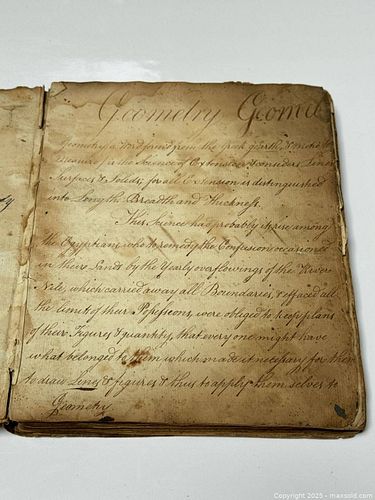 Geometry Geomet
Geometry a Word form'd from the Greek Earth & more to
Measure, is the Science of Extension & considers Lines
Surfaces & Solids, for all Extension is distinguished
into Length Breadth and Thickness.
This Science had probably its rise among
the Egyptians, who to remedy the Confusion occasioned
in their Lands by the Yearly overflowings of the River
Nile, which carried away all Boundaries, & effaced all
the limits of their Possessions, were obliged to keep plans
of their Figures & quantity, that every one might have
what belonged to them which made it necessary for them
to draw Lines & figures & thus to apply themselves to
Geometry
Copyright 2025 - maxsold.com